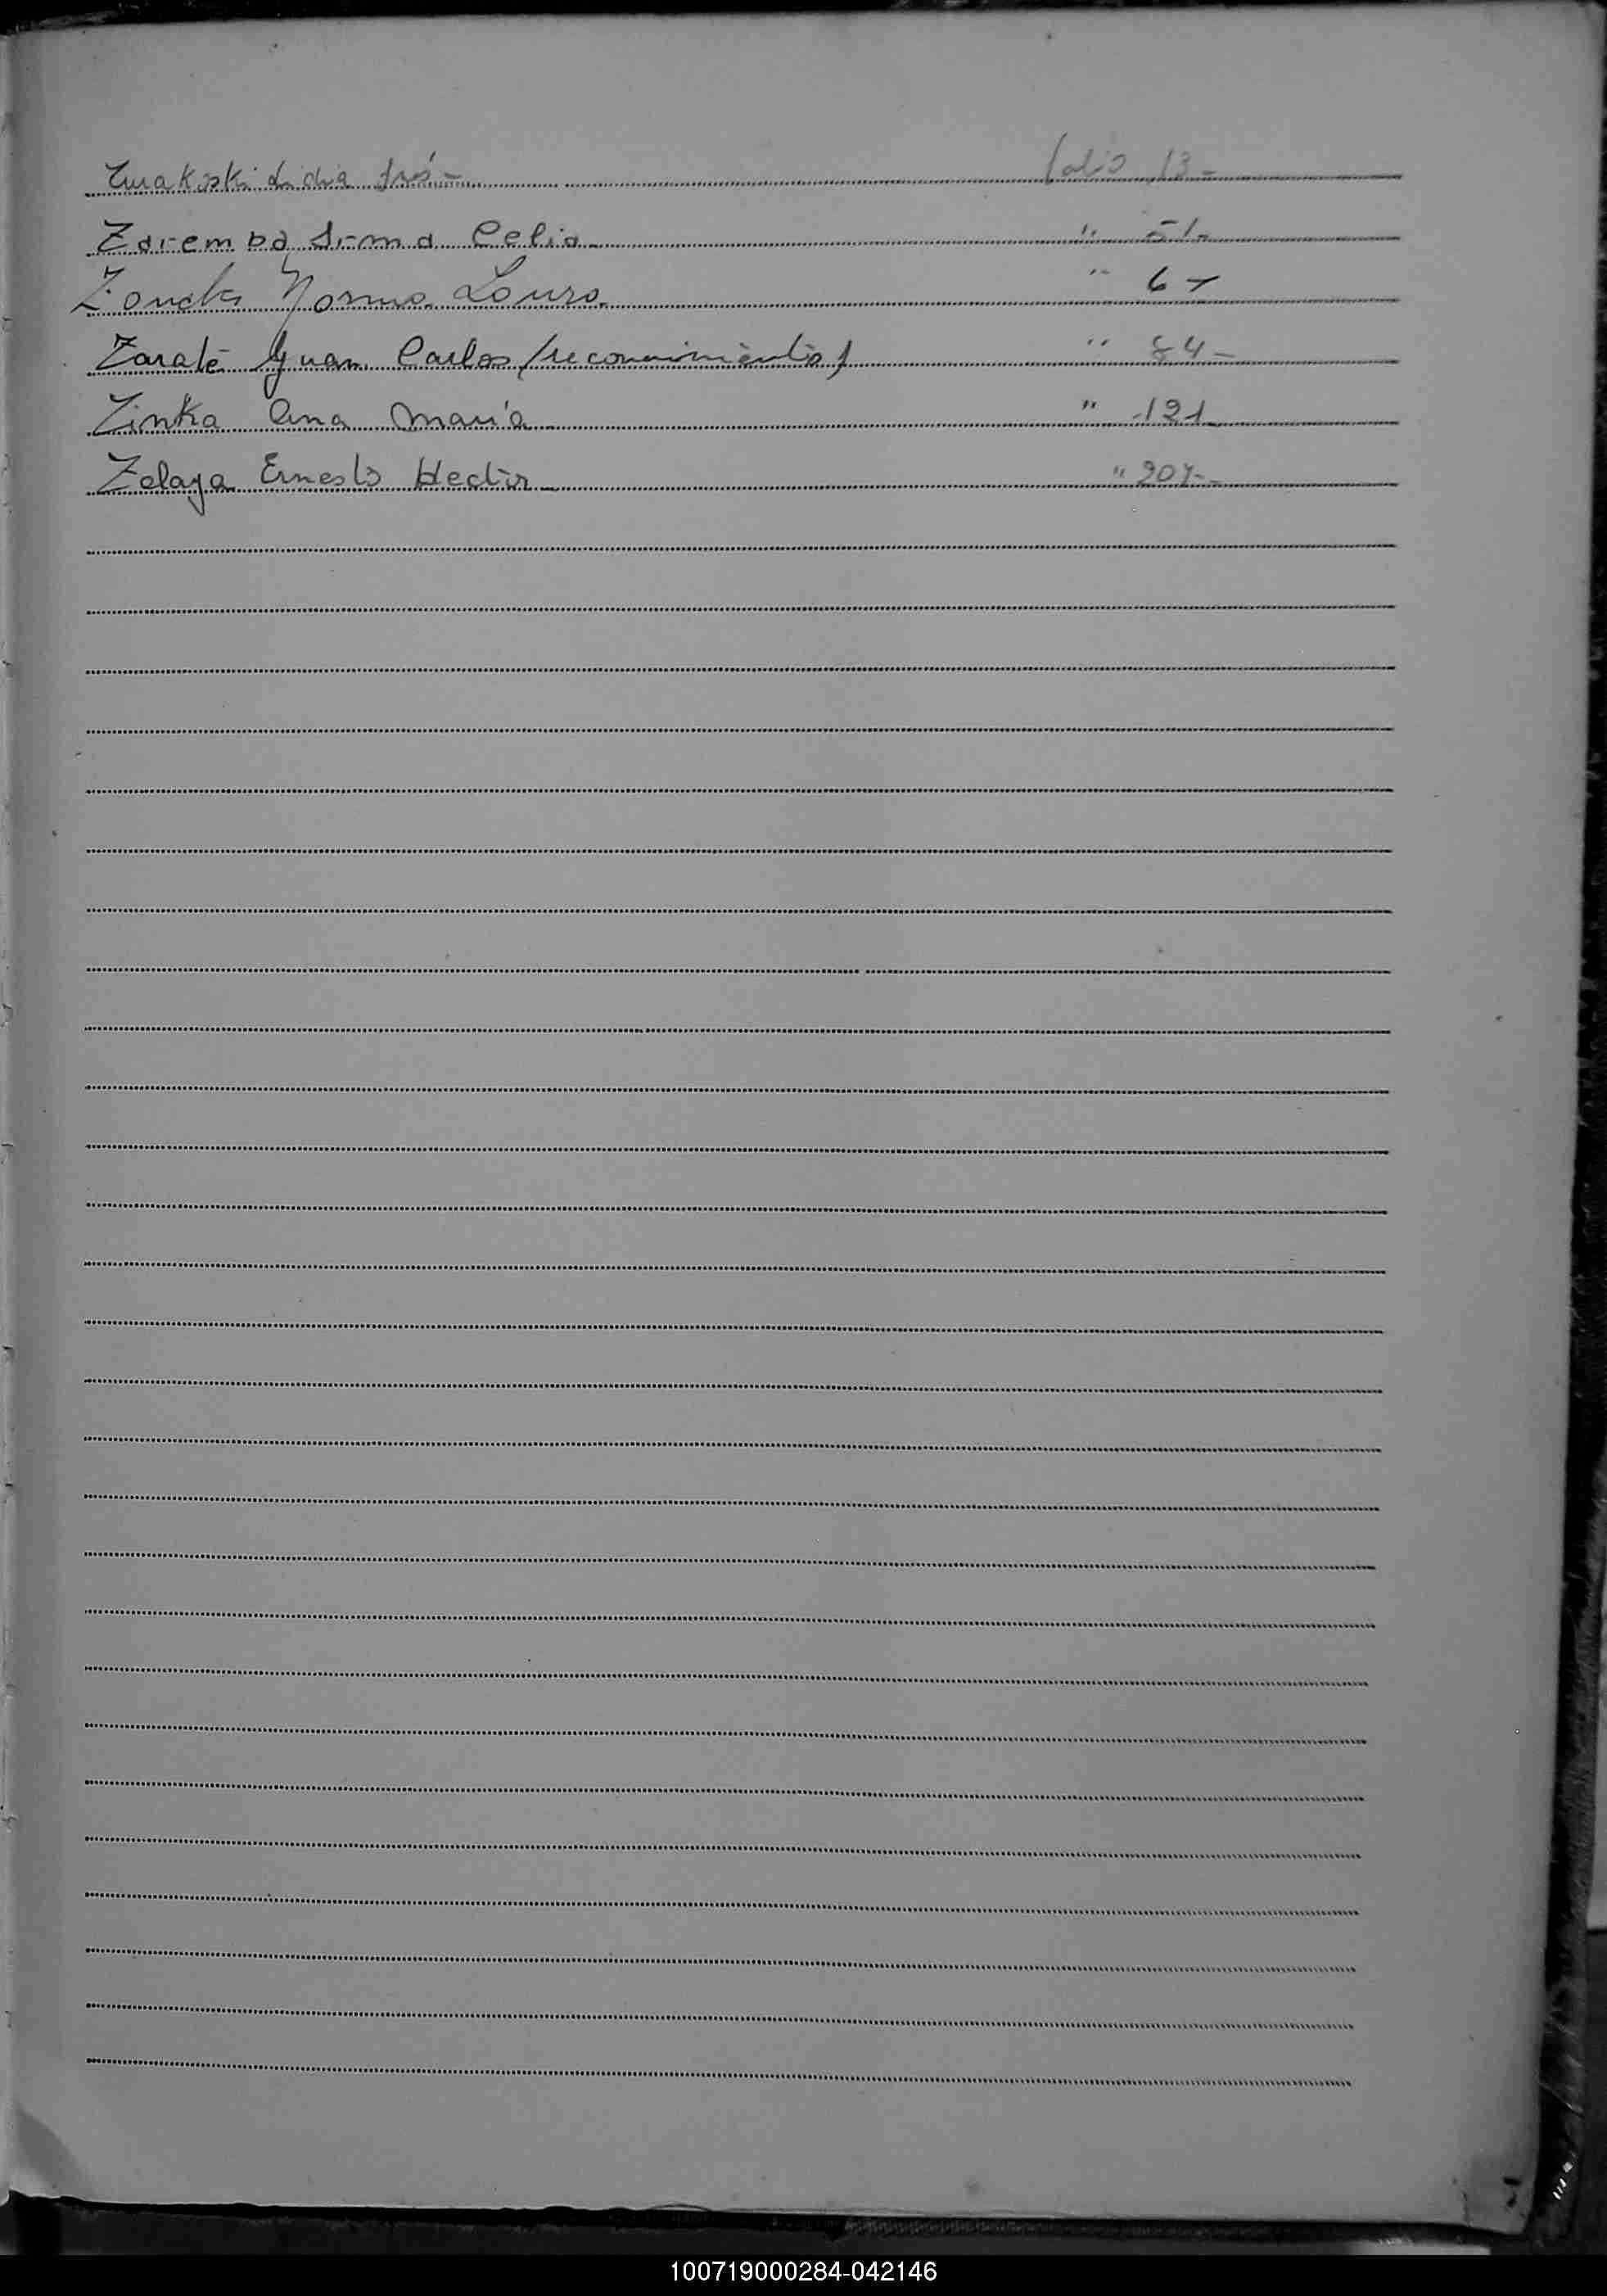 Lidia folio 13-
Zaremba Irma Celia " 51-
Norma Laura " 67
Zarate Juan Carlos (reconocimiento) " 84-
Zinka Ana Maria " 121
Zelaya Ernesto Hector " 207-
100719000284-042146